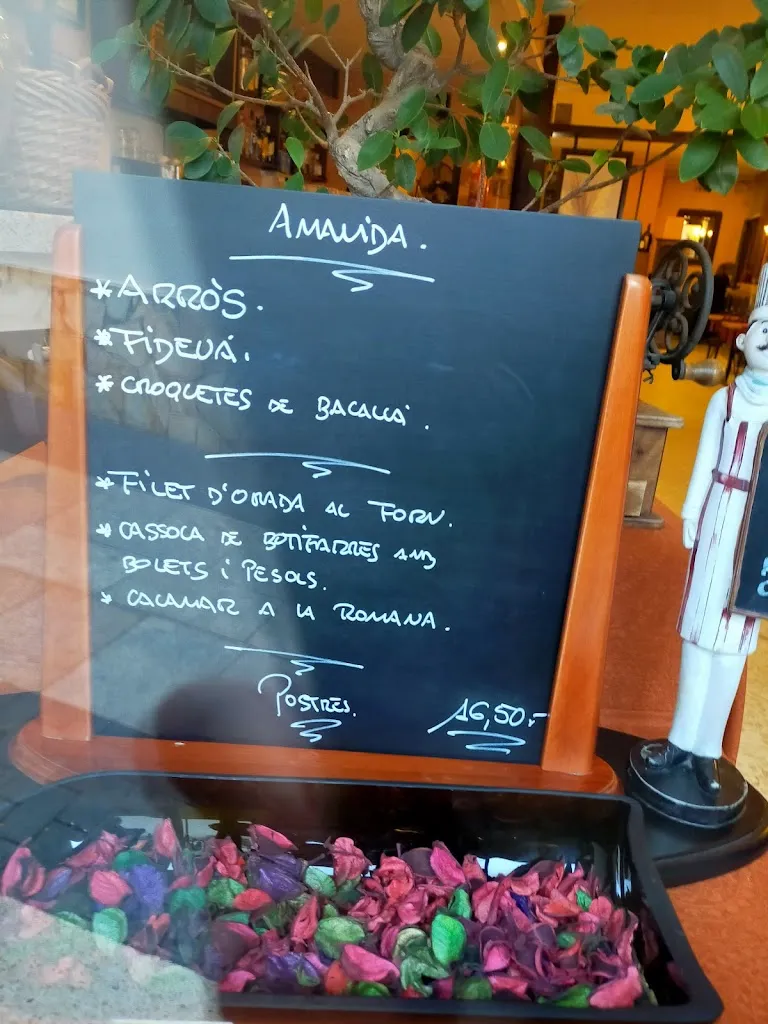 AMANIDA.
*ARRÒS.
*FIDEUÁ.
*CROQUETES DE BACALLÀ.
*FILET D'ORADA AL FORN.
*CASSOLA DE BOTIFARRES AMB
BOLETS I PESOLS.
*CALAMAR A LA ROMANA.
POSTRES.
16,50.-